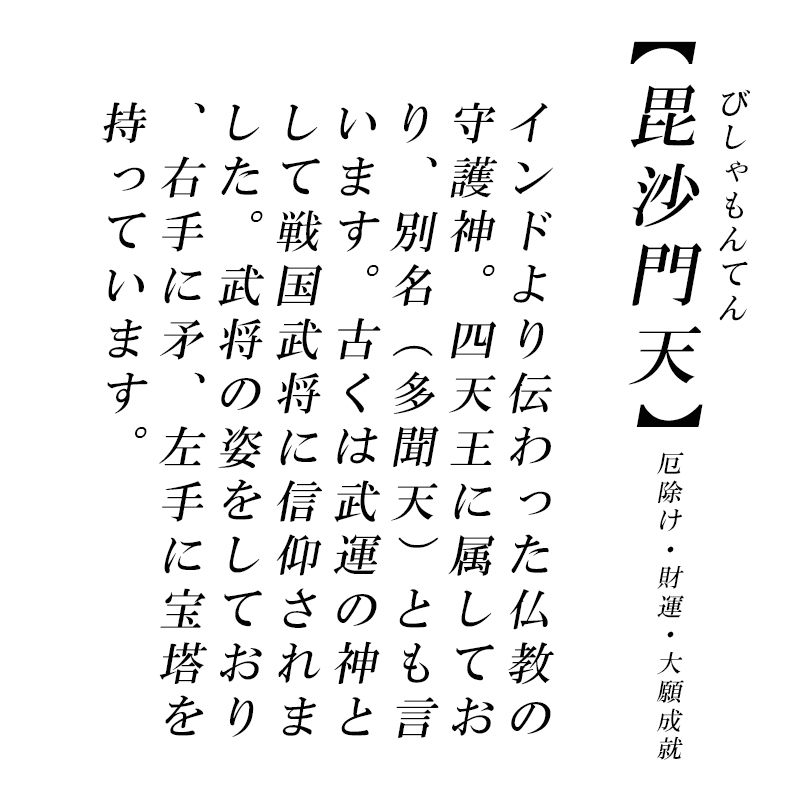 びしゃもんてん
【毘沙門天】厄除け・財運・大願成就
インドより伝わった仏教の
守護神。四天王に属してお
り、別名（多聞天）とも言
います。古くは武運の神と
して戦国武将に信仰されま
した。武将の姿をしており
、右手に矛、左手に宝塔を
持っています。